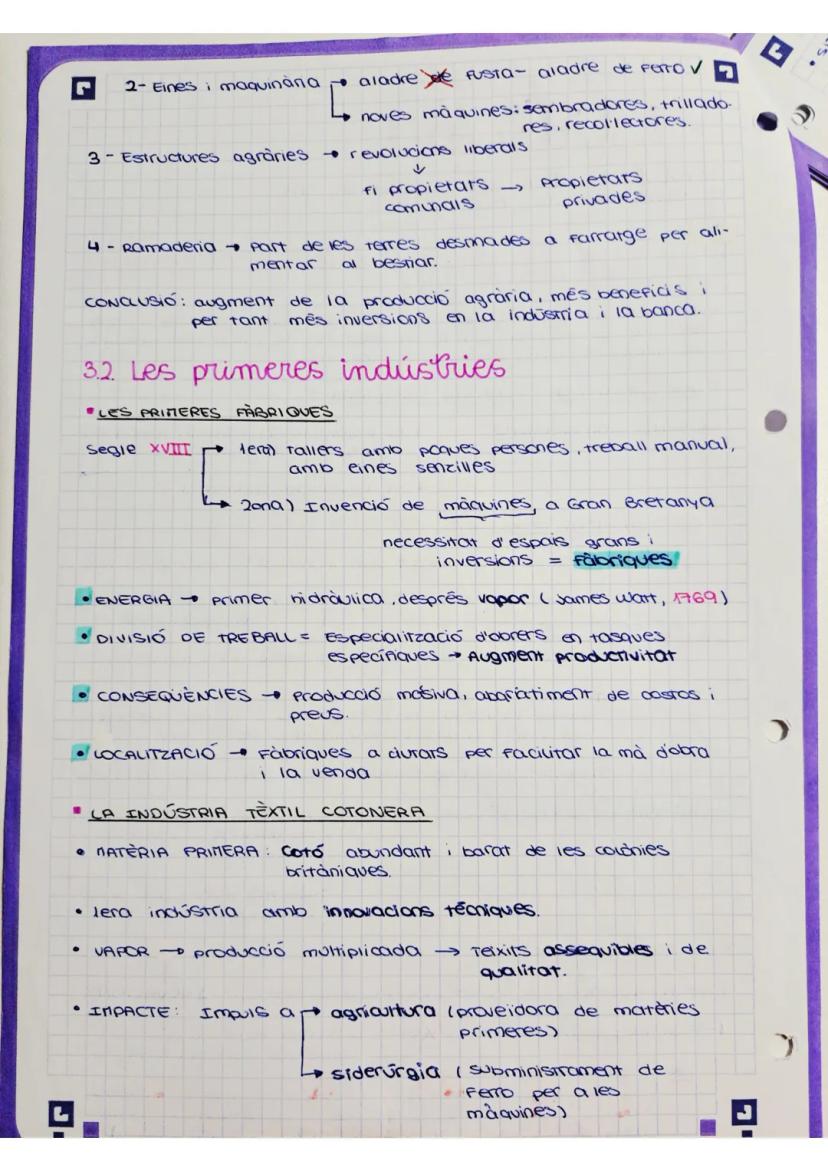 2- Eines i maquinària → aladre de fusta - aladre de ferro ✓
↳ noves màquines: sembradores, trillado-
res, recol·lectores.
3 - Estructures agràries → revolucions liberals
↓
fi propietats → Propietats
comunals privades
4 - Ramaderia → Part de les terres destinades a farratge per ali-
mentar al bestiar.
CONCLUSIÓ: augment de la producció agrària, més beneficis i
per tant més inversions en la indústria i la banca.
3.2 Les primeres indústries
LES PRIMERES FÀBRIQUES
Segle XVIII → 1era) Tallers amb poques persones, treball manual,
amb eines senzilles
↳ 2ona) Invenció de màquines, a Gran Bretanya
necessitat d'espais grans i
inversions = Fàbriques
• ENERGIA → primer hidràulica, després vapor (James Watt, 1769)
• DIVISIÓ DE TREBALL = Especialització d'obrers en tasques
específiques → Augment productivitat
• CONSEQÜÈNCIES → Producció massiva, abaratiment de costos i
preus.
• LOCALITZACIÓ → Fàbriques a ciutats per facilitar la mà d'obra
i la venda
LA INDÚSTRIA TÈXTIL COTONERA
• MATÈRIA PRIMERA: Cotó abundant i barat de les colònies
britàniques.
• 1era indústria amb innovacions tècniques.
• VAPOR → producció multiplicada → Teixits assequibles i de
qualitat.
• IMPACTE: Impuls a → agricultura (proveïdora de matèries
primeres)
↳ siderúrgia (subministrament de
Ferro per a les
màquines)